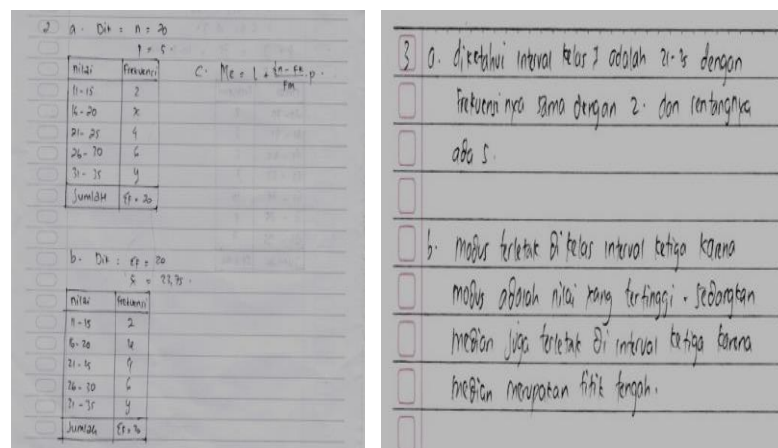 2 a. Dit : n = 20
p = 5
nilai Frekuensi
11-15 2
16-20 x
21-25 4
26-30 6
31-35 y
Jumlah Σf = 20
C. Me = L + ½n - Fk / Fm . p .
b. Dit : Σf = 20
= 23,75 .
nilai frekuensi
11-15 2
16-20
21-25
26-30 6
31-35 y
Jumlah
3 a. diketahui interval kelas 3 adalah 21-25 dengan
Frekuensi nya sama dengan 2. dan rentangnya
ada 5.
b. modus terletak di kelas interval ketiga karena
modus adalah nilai yang tertinggi. sedangkan
median juga terletak di interval ketiga karena
median merupakan titik tengah.